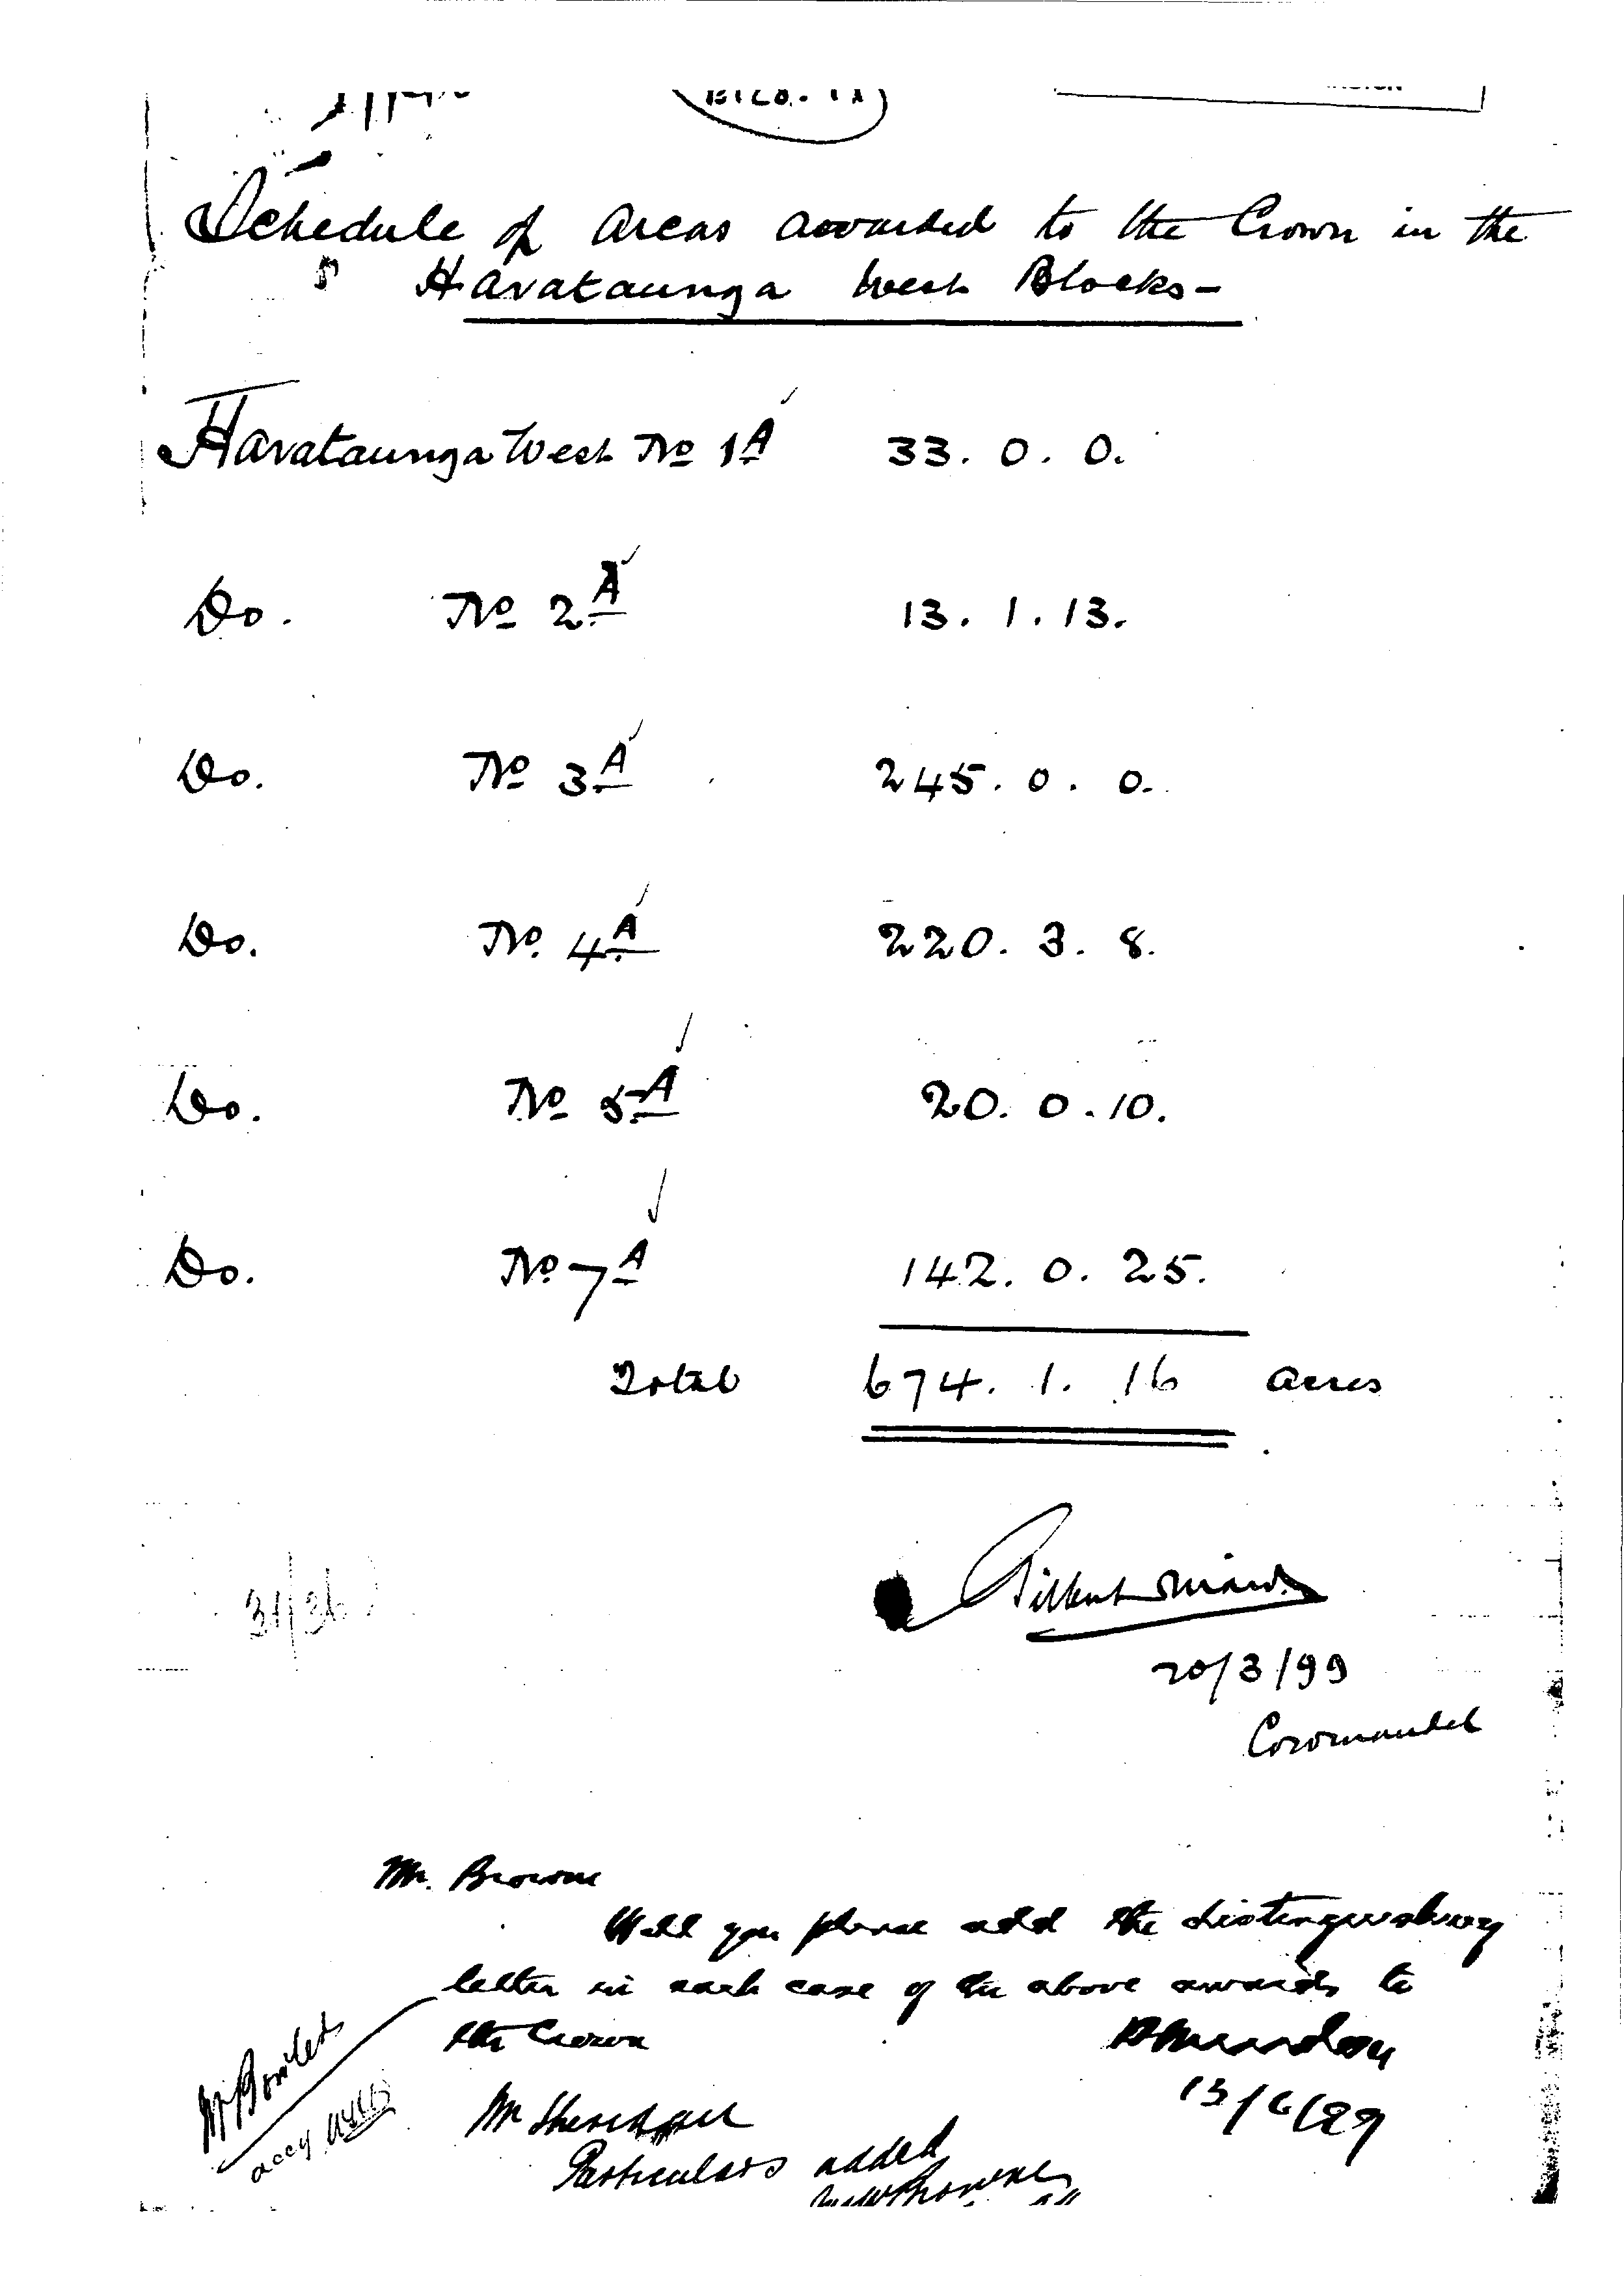 Schedule of areas awarded to the Crown in the
Harataunga West Blocks -
Harataunga West No 1A 33. 0. 0.
Do. No 2A 13. 1. 13.
Do. No 3A 245. 0. 0.
Do. No. 4A 220. 3. 8.
Do. No 5A 20. 0. 10.
Do. No 7A 142. 0. 25.
Total 674. 1. 16 acres
Gilbert Mair
20/3/99
Coromandel
Mr. Browne
Will you please add the distinguishing
letter in each case of the above awards to
the Crown
Mr Sheridan
Particulars added